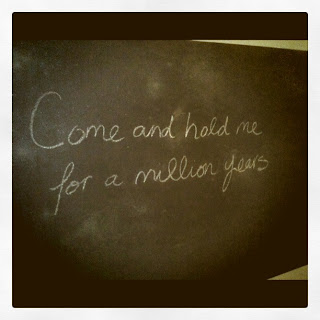 Come and hold me
for a million years